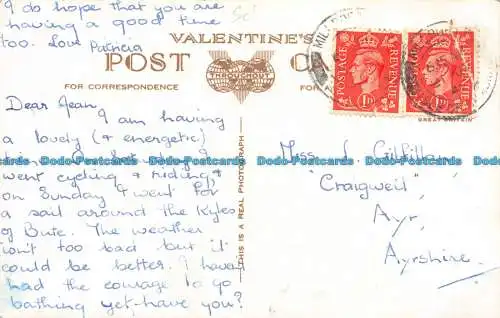 I do hope that you are
having a good time
too. Love Patricia
VALENTINE'S
POST
THROUGHOUT
FOR CORRESPONDENCE
Dear Jean,
I am having
a lovely (+ energetic)
went cycling & riding,
on Sunday & went for
a sail around the Kyles
of Bute. The weather
isn't too bad but it
could be better. I haven't
had the courage to go
bathing yet - have you?
THIS IS A REAL PHOTOGRAPH
POSTAGE
REVENUE
1D
POSTAGE
REVENUE
1D
GREAT BRITAIN
Miss J. Gilfillan
"Craigweil"
Ayr,
Ayrshire.
Postcards
bidStart